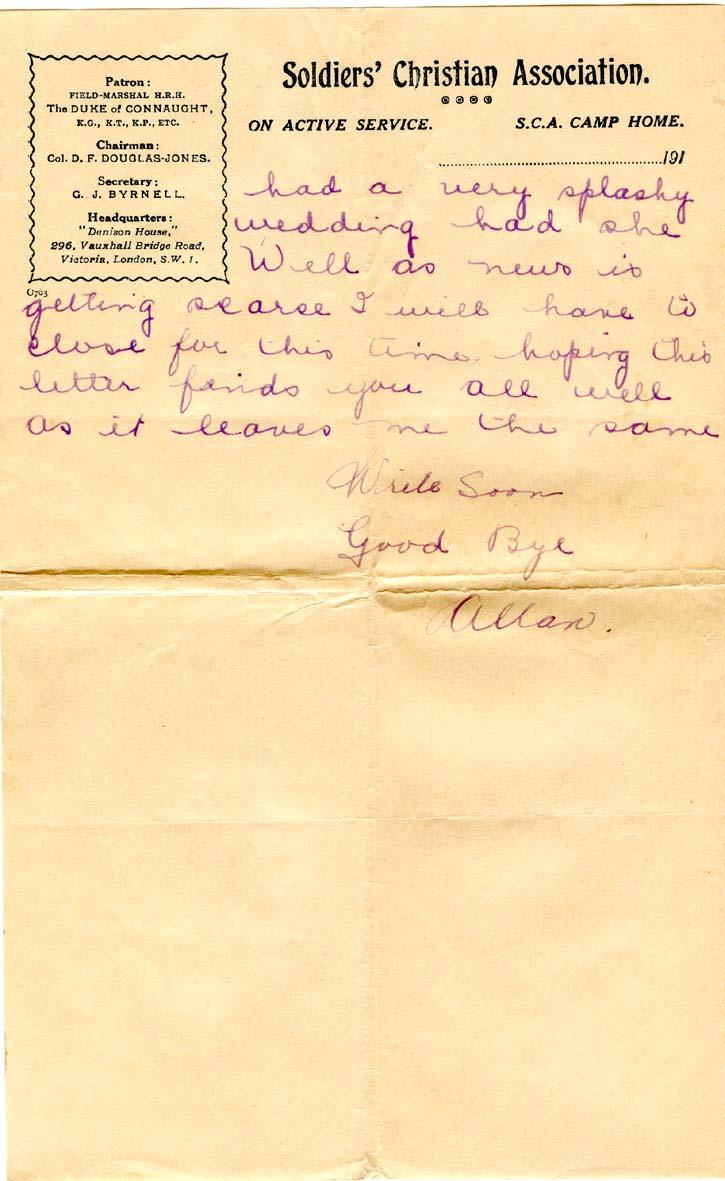 Patron:
FIELD-MARSHAL H.R.H.
The DUKE of CONNAUGHT,
K.G., K.T., K.P., ETC.
Chairman:
Col. D. F. DOUGLAS-JONES.
Secretary:
G. J. BYRNELL.
Headquarters:
"Denison House,"
296, Vauxhall Bridge Road,
Victoria, London, S.W. 1.
G763
Soldiers' Christian Association.
ON ACTIVE SERVICE. S.C.A. CAMP HOME.
....................................................191
had a very splashy
wedding had she
Well as news is
getting scarse I will have to
close for this time. hoping this
letter finds you all well
as it leaves me the same
Write Soon
Good Bye
Allan.